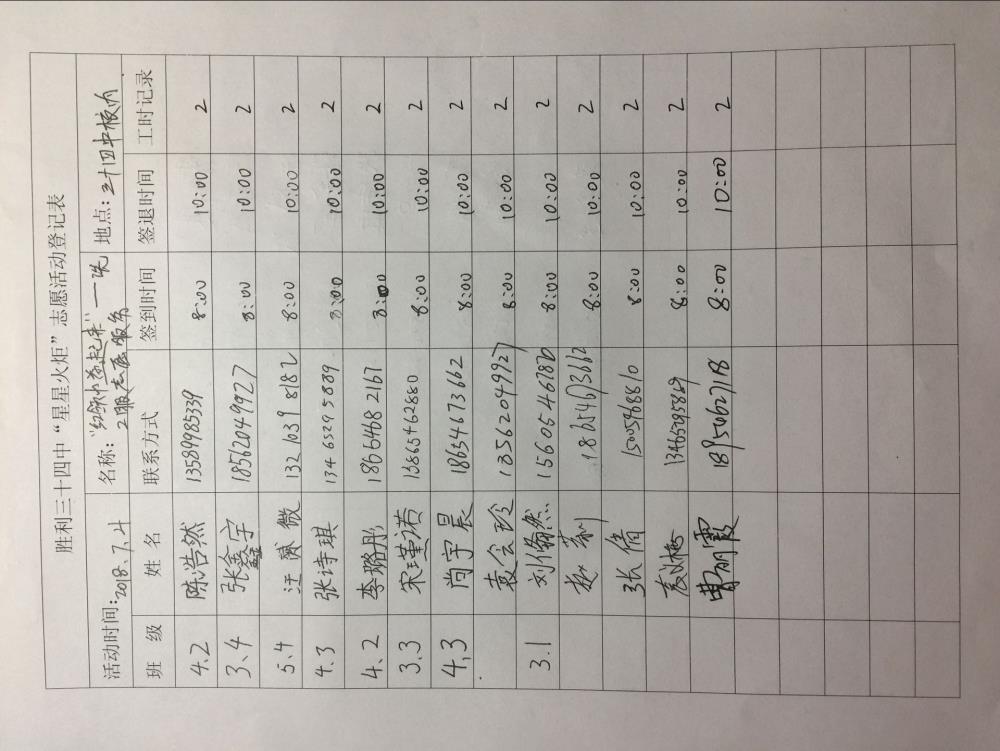 胜利三十四中“星星火炬”志愿活动登记表
活动时间：2018.7.4 名称：“红领巾益起来”— 地点：三十四中校内
志愿服务
班 级 姓 名 联系方式 签到时间 签退时间 工时记录
4.2 陈浩然 13589985339 8:00 10:00 2
3.4 张鑫宇 18562049927 8:00 10:00 2
5.4 汪薇 132 1039 8182 8:00 10:00 2
4.3 张诗琪 134 6529 5889 8:00 10:00 2
4.2 李璐彤 1866468 2167 8:00 10:00 2
3.3 宋瑾诺 13865462880 8:00 10:00 2
4.3 尚宇晨 18654673662 8:00 10:00 2
袁会珍 18562049927 8:00 10:00 2
3.1 刘翰然 15605467870 8:00 10:00 2
赵莉 18654673662 8:00 10:00 2
张倩 15005468810 8:00 10:00 2
13465295889 8:00 10:00 2
曹丽霞 18954627118 8:00 10:00 2